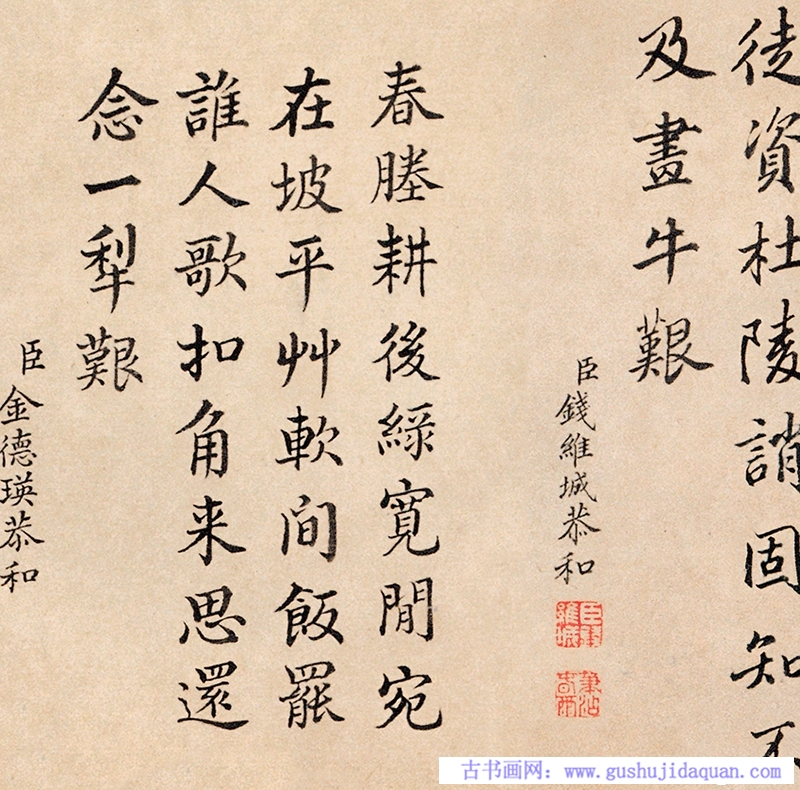 徒資杜陵誚固知不
及畫牛艱
臣錢維城恭和
春塍耕後綠寬閒宛
在坡平艸軟間飯罷
誰人歌扣角来思還
念一犁艱
臣金德瑛恭和
古书画网：www.gushujidaquan.com